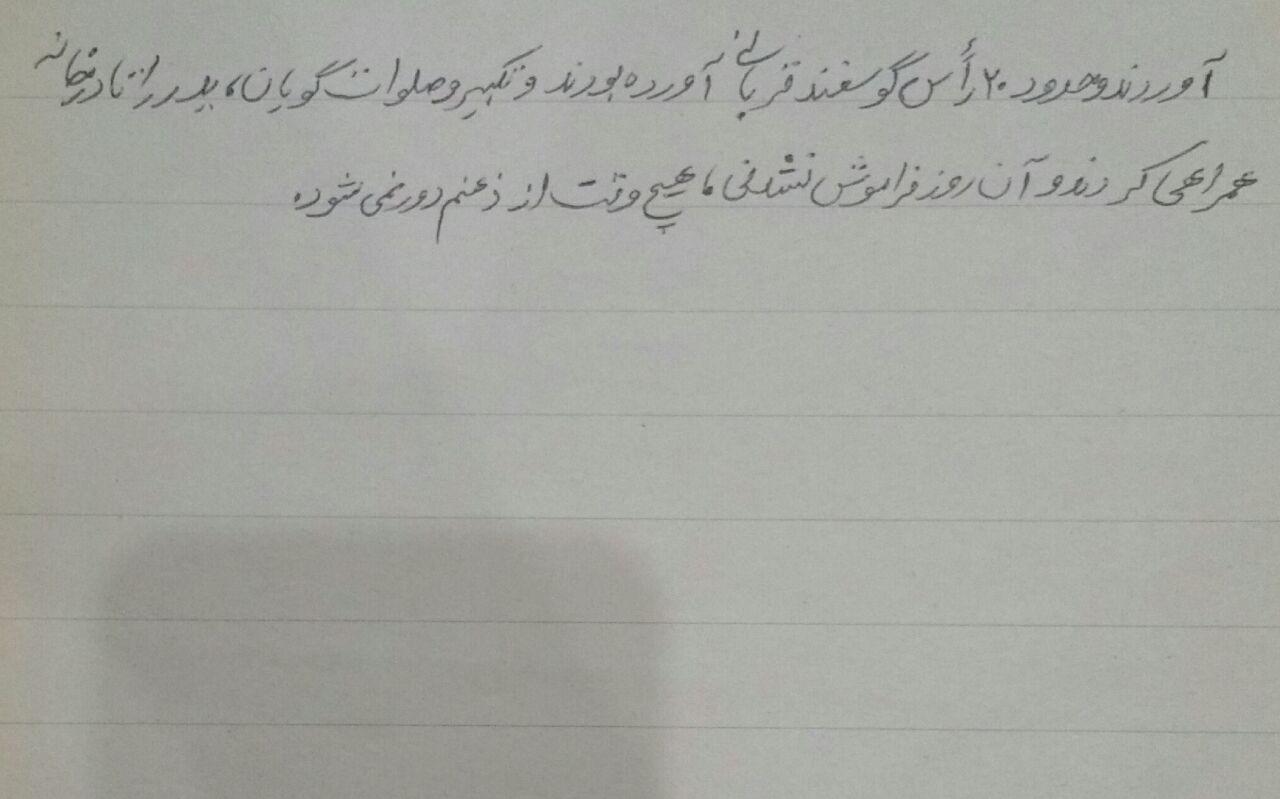 آوردند و حدود ۲۰ رأس گوسفند قربانی آورده بودند و تکبیر و صلوات گویان، پدر را تا در خانه
همراهی کردند و آن روز فراموش نشدنی، هیچ وقت از ذهنم دور نمی شود.